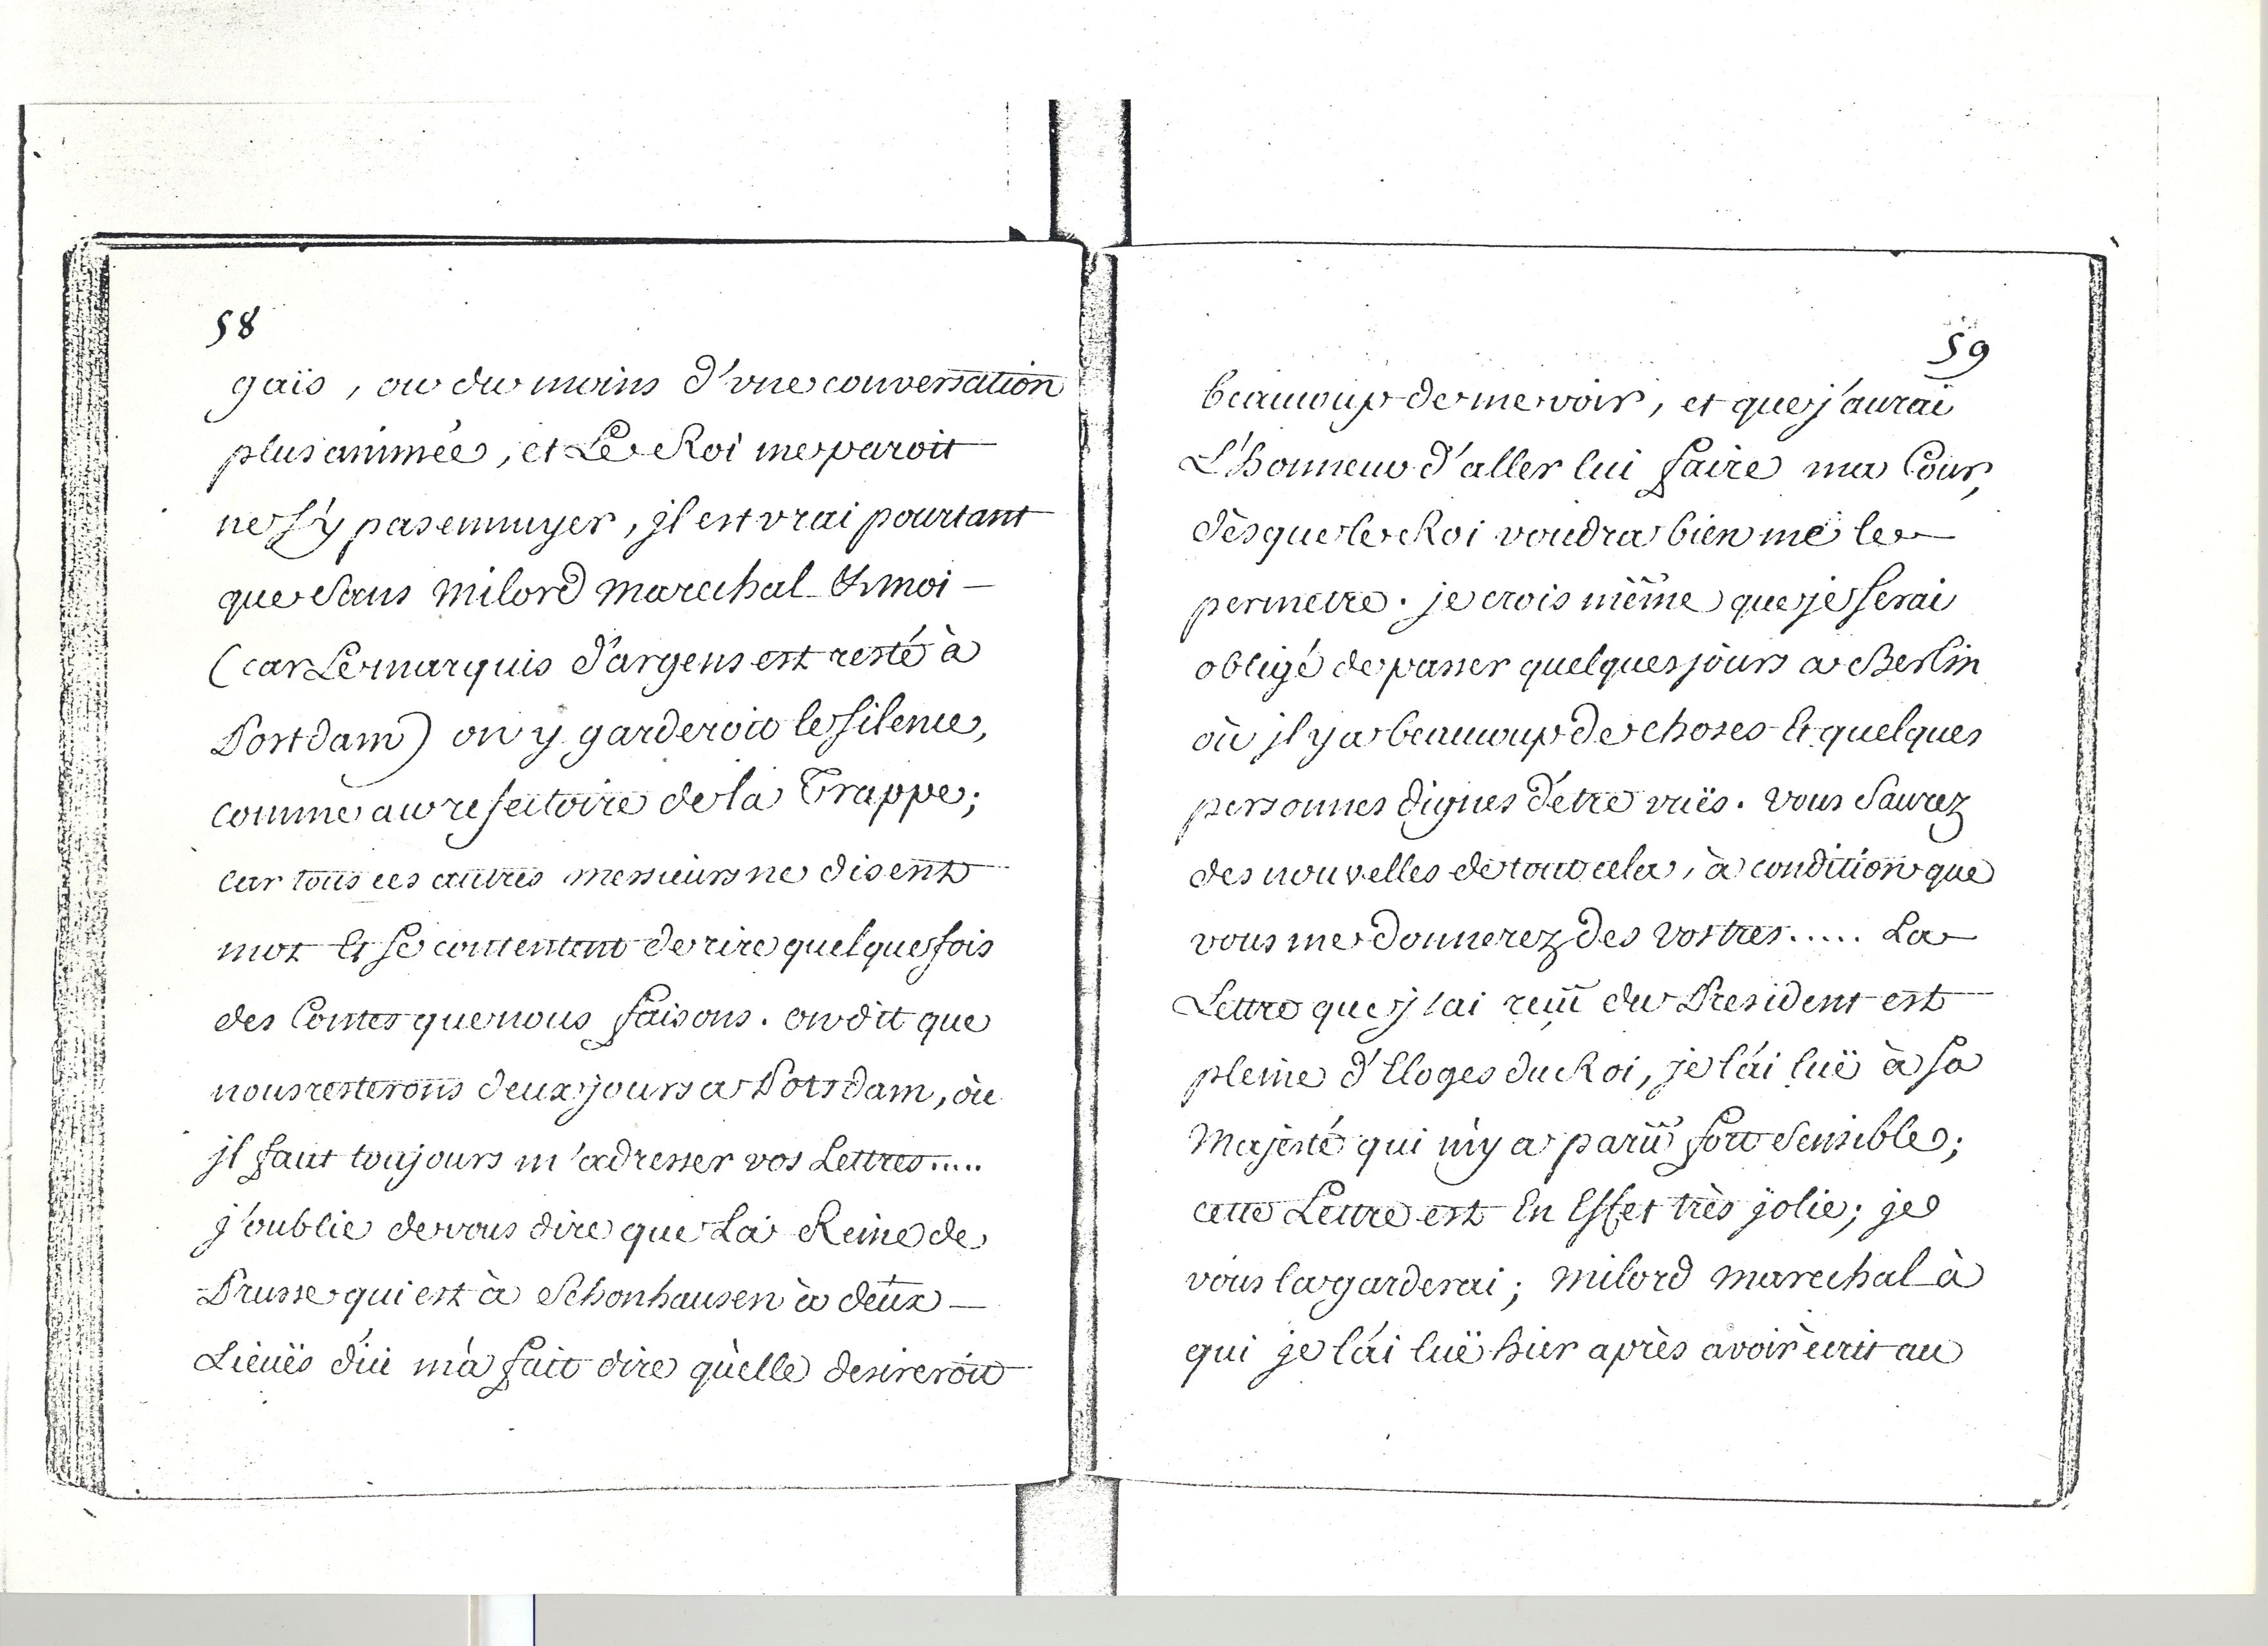 58
gais, ou du moins d'une conversation
plus animée, et Le Roi me paroit
ne s'y pas ennuyer, jl est vrai pourtant
que sans milord marechal & moi
(car Le marquis d'argens est resté à
Postdam) on y garderoit le silence,
comme au refectoire de la Trappe;
car tous ces autres messieurs ne disent
mot Et se contentent de rire quelquefois
des Contes que nous faisons. on dit que
nous resterons deux jours a Potsdam, où
jl faut toujours m'adresser vos Lettres.....
j'oublie de vous dire que La Reine de
Prusse qui est à Schonhausen à deux
Lieuës d'ici m'a fait dire qu'elle desireroit
59
beaucoup de me voir, et que j'aurai
L'honneur d'aller lui faire ma Cour,
dès que le Roi voudra bien me le
permetre. je crois même que je serai
obligé de passer quelques jours a Berlin
où jl y a beaucoup de choses Et quelques
personnes dignes d'etre vuës. vous saurez
des nouvelles de tout cela, à condition que
vous me donnerez des vostres..... La
Lettre que j'ai reçuë du President est
pleine d'Eloges du Roi, je l'ai luë à sa
Majesté qui m'y a parû fort sensible;
cette Lettre est En Effet très jolie; je
vous la garderai; milord marechal à
qui je l'ai luë hier après avoir ècrit au